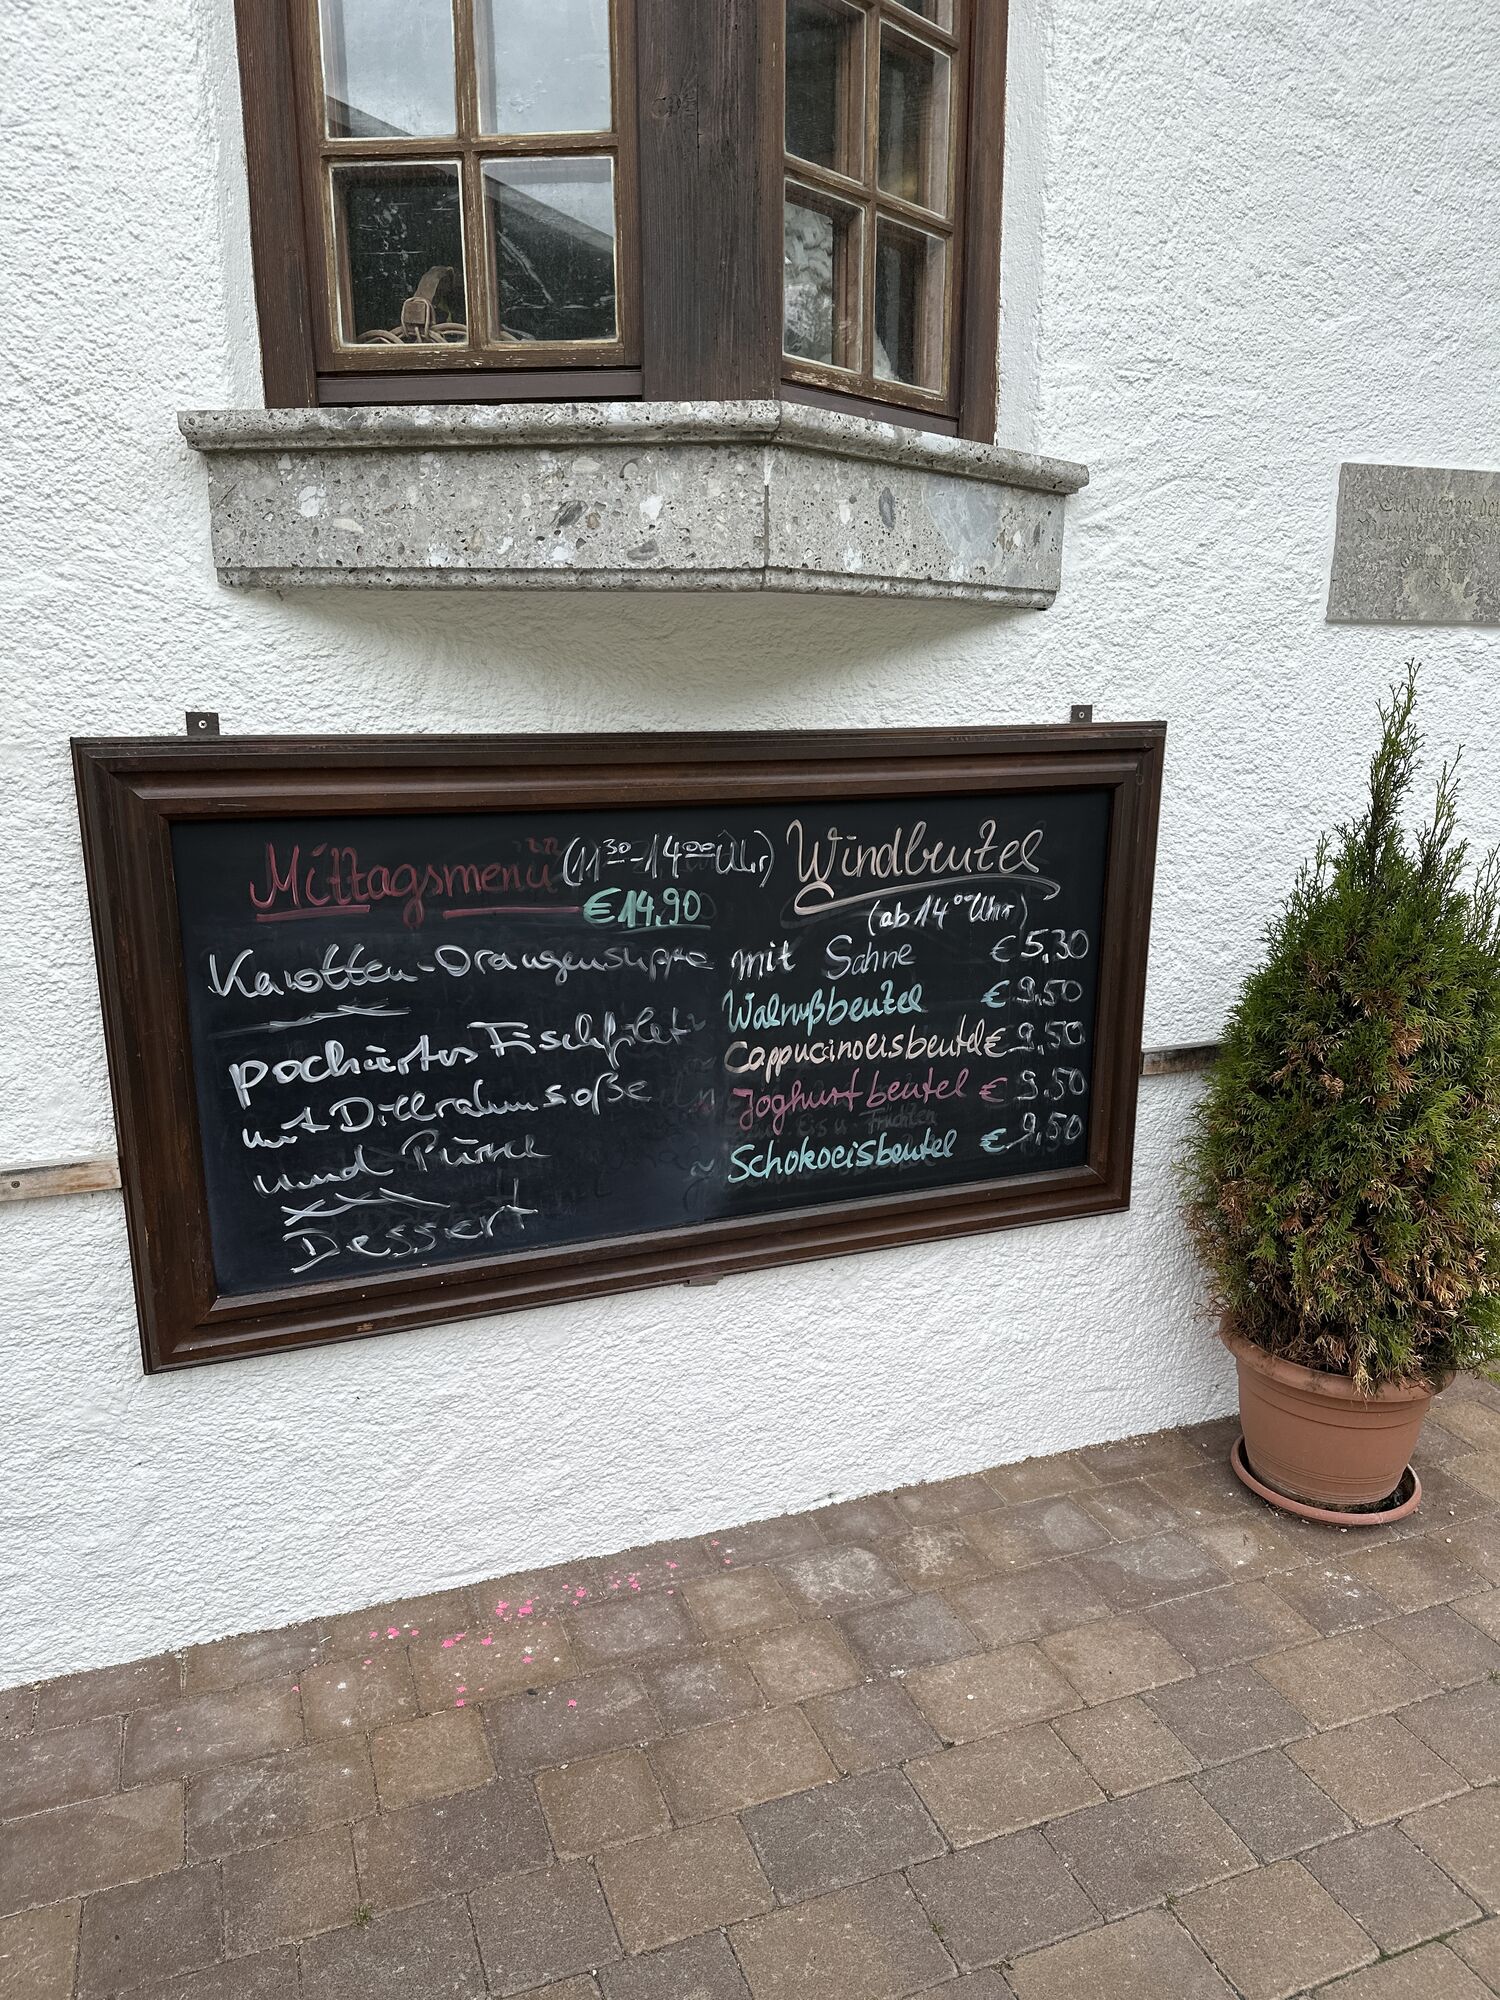 Mittagsmenü (11³⁰-14⁰⁰ Uhr)
€ 14,90
Karotten-Orangensuppe
pochiertes Fischfilet
mit Dillrahmsoße
und Püree
Dessert
Windbeutel
(ab 14⁰⁰ Uhr)
mit Sahne € 5,30
Walnußbeutel € 9,50
Cappuccinoeisbeutel € 9,50
Joghurtbeutel € 9,50
Schokoeisbeutel € 9,50